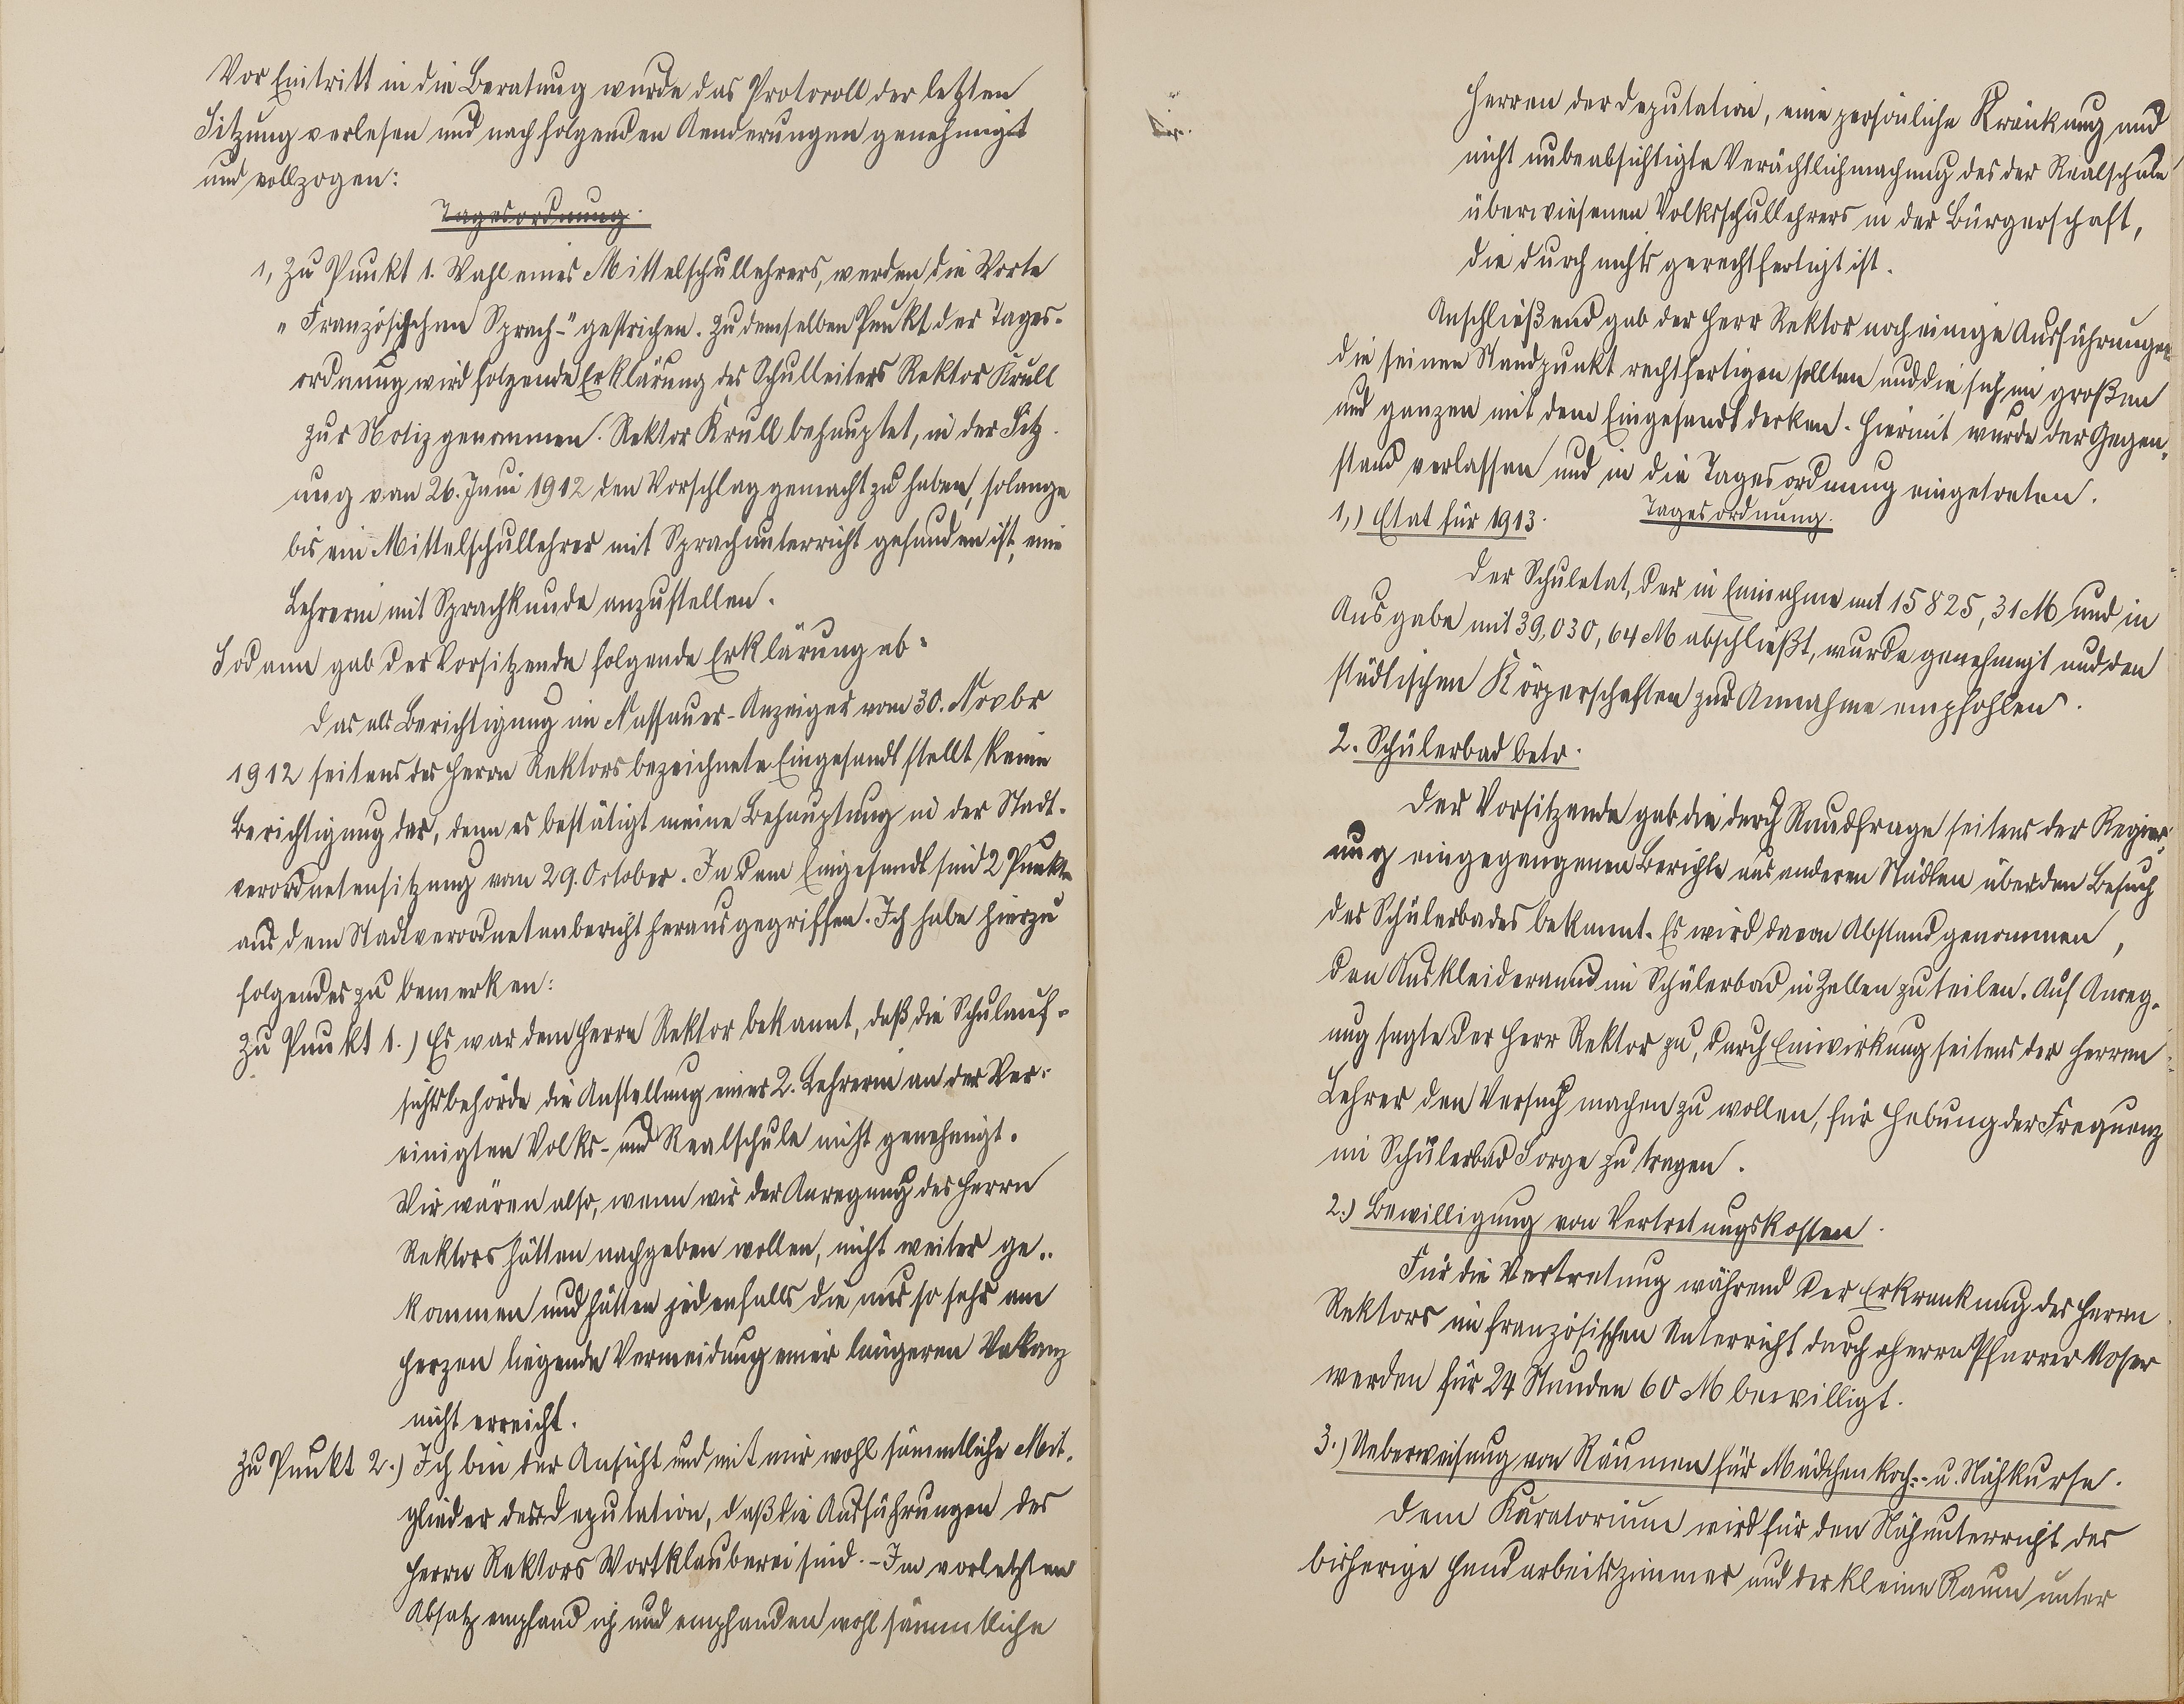 Vor Eintritt in die Beratung wurde das Protocoll der letzten
Sitzung verlesen und nach folgenden Aenderungen genehmigt
und vollzogen:
Tagesordnung.
1, Zu Punkt 1. Wahl eines Mittelschullehrers, werden die Worte
"Französischen Sprach-" gestrichen. Zu demselben Punkt der Tages-
ordnung wird folgende Erklärung des Schulleiters Rektor Krull
zur Notiz genommen. Rektor Krull behauptet, in der Sitz-
ung vom 26. Juni 1912 den Vorschlag gemacht zu haben, solange
bis ein Mittelschullehrer mit Sprachunterricht gefunden ist, eine
Lehrerin mit Sprachkunde anzustellen.
Sodann gab der Vorsitzende folgende Erklärung ab:
Das als Berichtigung im Nassauer-Anzeiger vom 30. Novbr
1912 seitens des Herrn Rektors bezeichnete Eingesandt stellt keine
Berichtigung dar, denn es bestätigt meine Behauptung in der Stadt-
verordnetensitzung vom 29. October. In dem Eingesandt sind 2 Punkte
aus dem Stadtverordnetenbericht herausgegriffen. Ich habe hierzu
folgendes zu bemerken:
Zu Punkt 1.) Es war dem Herrn Rektor bekannt, daß die Schulauf-
sichtsbehörde die Anstellung einer 2. Lehrerin an der Ver-
einigten Volks- und Realschule nicht genehmigt.
Wir wären also, wenn wir der Anregung des Herrn
Rektors hätten nachgeben wollen, nicht weiter ge-
kommen und hätten jedenfalls die uns so sehr am
Herzen liegende Vermeidung einer längeren Vakanz
nicht erreicht.
Zu Punkt 2.) Ich bin der Ansicht und mit mir wohl sämmtliche Mit-
glieder der Deputation, daß die Ausführungen des
Herrn Rektors Wortklauberei sind. - Im vorletzten
Absatz empfand ich und empfanden wohl sämmtliche
Herren der Deputation, eine persönliche Kränkung und
nicht unbeabsichtigte Verächtlichmachung des der Realschule
überwiesenen Volksschullehrers in der Bürgerschaft,
die durch nichts gerechtfertigt ist.
Anschließend gab der Herr Rektor noch einige Ausführungen
die seinen Standpunkt rechtfertigen sollten und die sich im großen
und ganzen mit dem Eingesandt decken. Hiermit wurde der Gegen-
stand verlassen und in die Tagesordnung eingetreten.
Tagesordnung.
1,) Etat für 1913.
Der Schuletat, der in Einnahme mit 15825,31 M und in
Ausgabe mit 39,030,64 M abschließt, wurde genehmigt und den
städtischen Körperschaften zur Annahme empfohlen.
2. Schülerbad betr.
Der Vorsitzende gab die durch Rundfrage seitens der Regier-
ung eingegangenen Berichte aus anderen Städten über den Besuch
des Schülerbades bekannt. Es wird davon Abstand genommen,
den Auskleideraum im Schülerbad in Zellen zu teilen. Auf Anreg-
ung sagte der Herr Rektor zu, durch Einwirkung seitens der Herren
Lehrer den Versuch machen zu wollen, für Hebung der Frequenz
im Schülerbad Sorge zu tragen.
2.) Bewilligung von Vertretungskosten.
Für die Vertretung während der Erkrankung des Herrn
Rektors im französischen Unterricht durch Herrn Pfarrer Moser
werden für 24 Stunden 60 M bewilligt.
3.) Ueberweisung von Räumen für Mädchen koch- u. Nähkurse.
Dem Kuratorium wird für den Nähunterricht das
bisherige Handarbeitszimmer und der kleine Raum unter